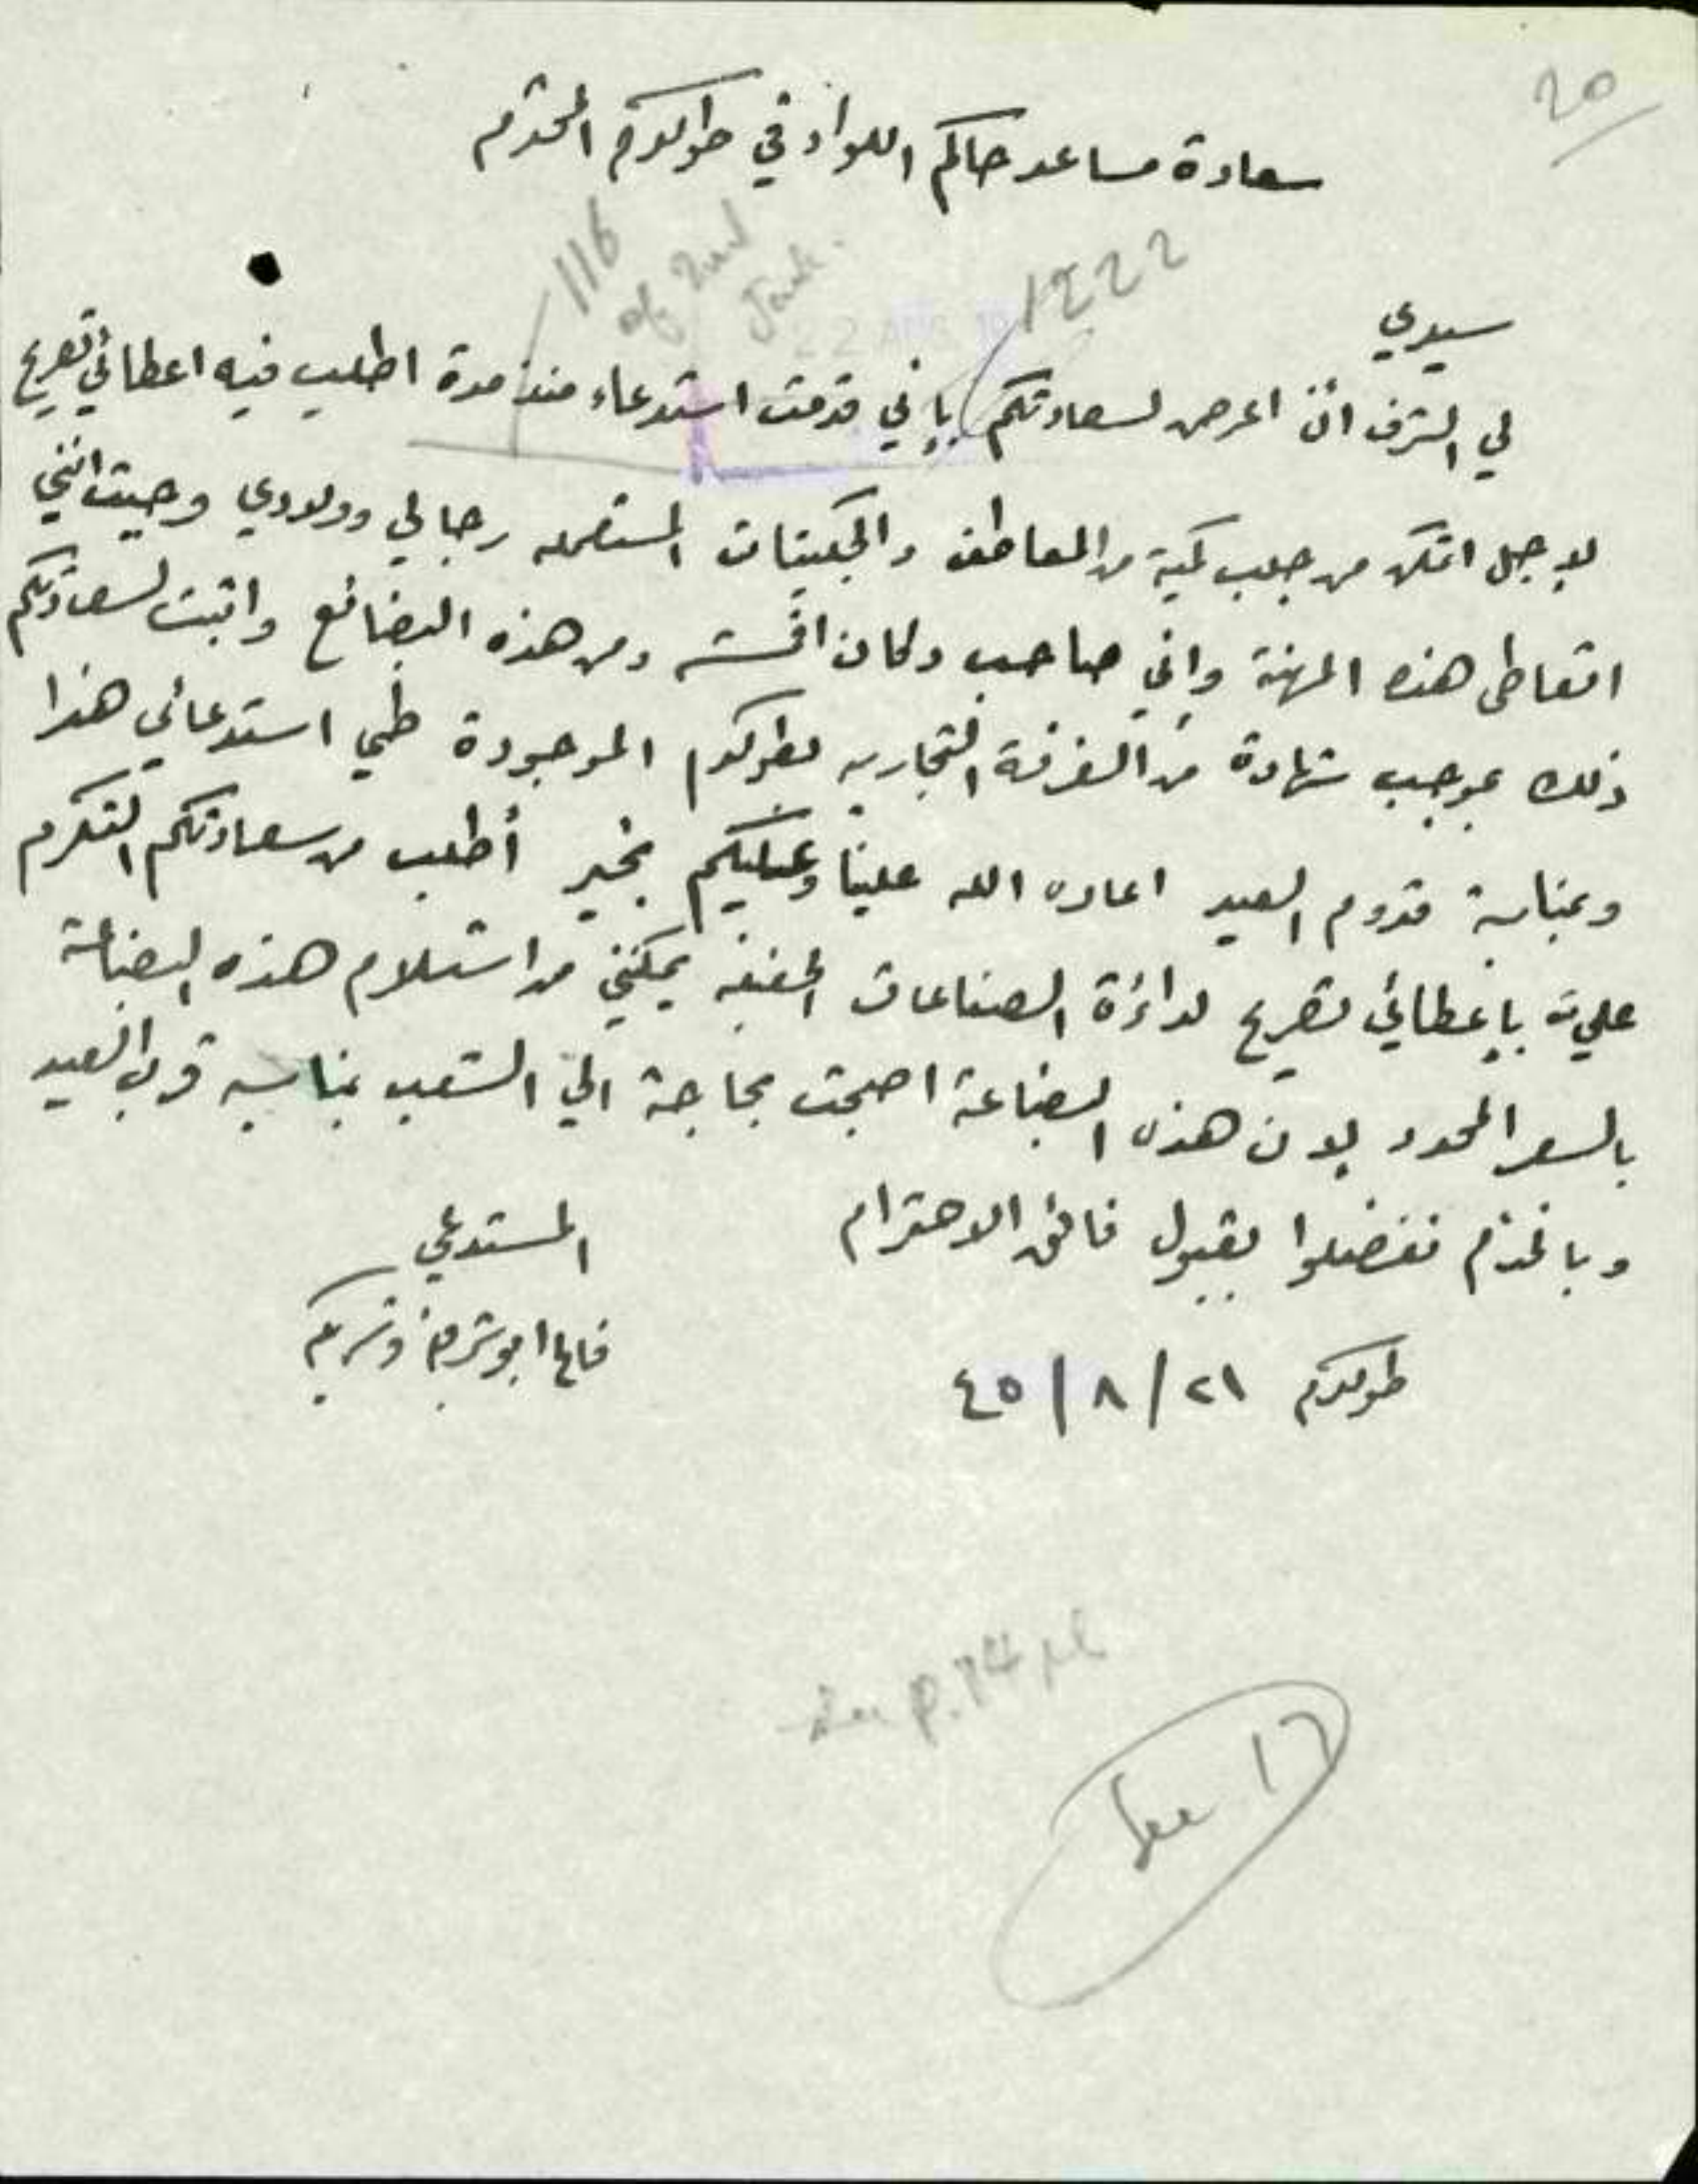 20
سعادة مساعد حاكم اللواء في طولكرم المحترم
116
of 2nd
Jack.
1222
22 AUG
سيدي
لي الشرف ان اعرض لسعادتكم بإني قدمت استدعاء منذ مدة اطلب فيه اعطائي تصريح
لاجل اتمكن من جلب كمية من المعاطف والجكيتات المستعمله رجالي وولادي وحيث انني
اتعاطى هذه المهنة واني صاحب دكان اقمشه ومن هذه البضائع واثبت لسعادتكم
ذلك بموجب شهادة من الغرفة التجاريه بطولكرم الموجودة طي استدعائي هذا
وبمناسبة قدوم العيد اعاده الله علينا وعليكم بخير أطلب من سعادتكم التكرم
عليّ بإعطائي تصريح لدائرة الصناعات الخفيفه يمكنني من استلام هذه البضاعة
بالسعر المحدد لان هذه البضاعة اصبحت بحاجة الي الشعب بمناسبه قرب العيد
وبالختام تفضلوا بقبول فائق الاحترام
المستدعي
طولكرم ٢١/٨/٤٥
See p.14
See 17